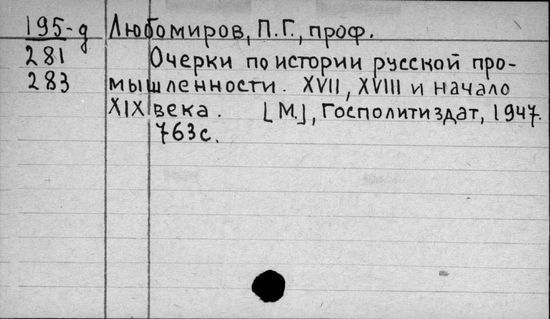 195-д Любомиров, П.Г., проф.
281 Очерки по истории русской про-
283 мышленности. XVII, XVIII и начало
XIX века. [М.], Госполитиздат, 1947.
763с.